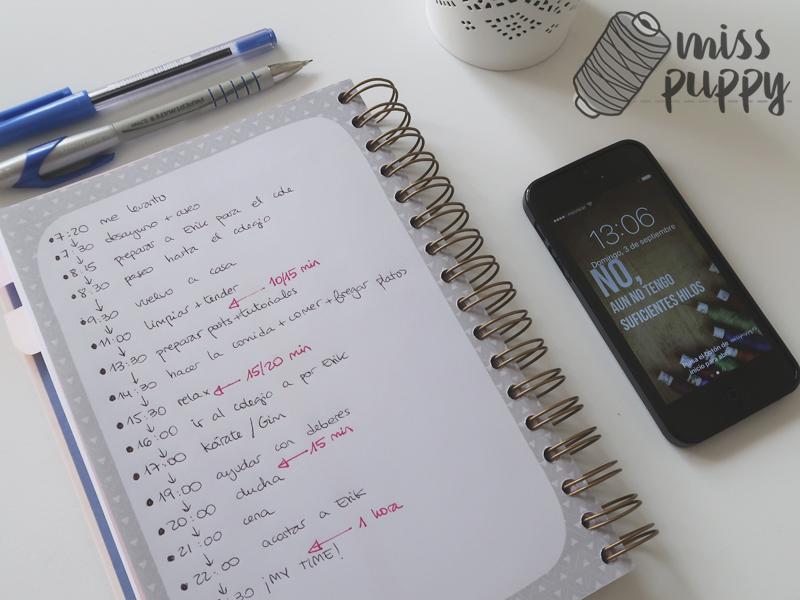 miss
puppy
7:20 me levanto
7:30 desayuno + aseo
8:15 preparar a Erik para el cole
8:30 paseo hasta el colegio
9:30 vuelvo a casa
11:00 limpiar + tender 10/15 min
13:30 preparar posts+tutoriales
14:30 hacer la comida + comer + fregar platos
15:30 relax 15/20 min
16:00 ir al colegio a por Erik
17:00 Kárate / Gim
19:00 ayudar con deberes
20:00 ducha 15 min
21:00 cena
22:00 acostar a Erik
:30 ¡MY TIME! 1 hora
13:06
Domingo, 3 de septiembre
NO,
AUN NO TENGO
SUFICIENTES HILOS
Pulsa el botón de
inicio para abrir